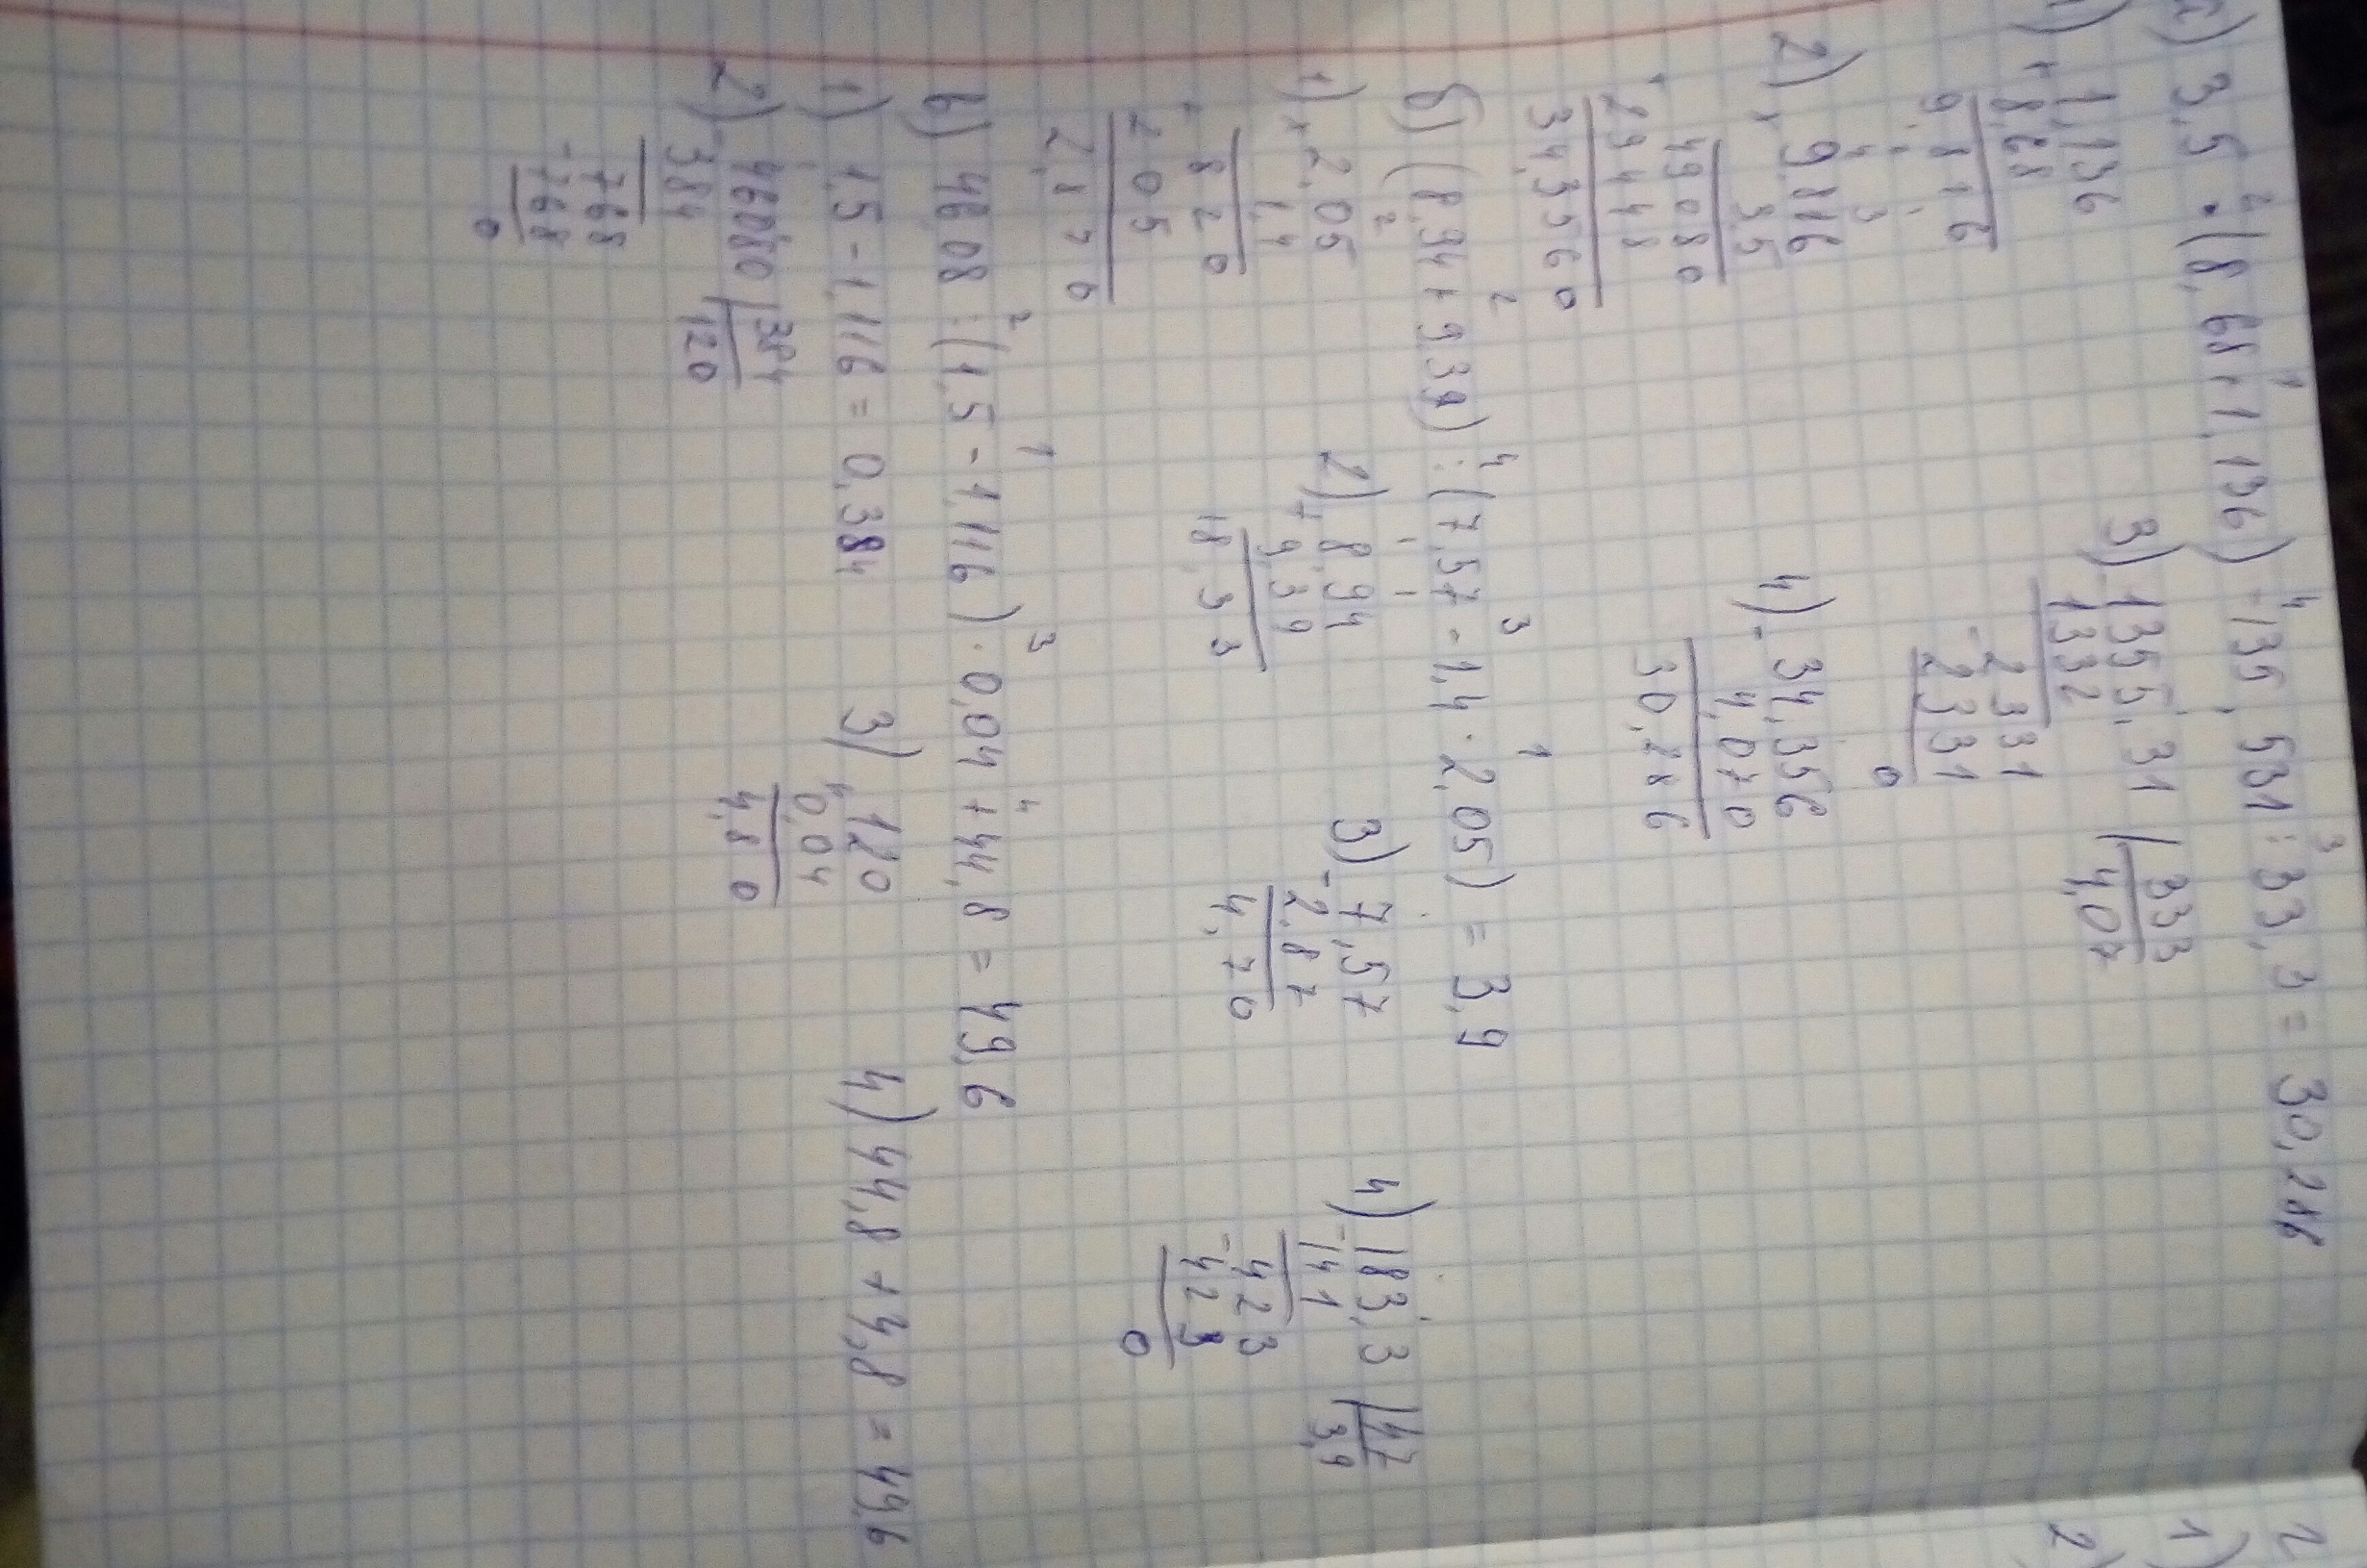 3,5 · (8,68 + 1,136) - 135,531 : 33,3 = 30,286
1) + 1,136
8,68
9,816
2) × 9,816
3,5
49080
29448
34,3560
3) 1355,31 | 333
1332 | 4,07
- 2331
2331
0
4) - 34,356
4,070
30,286
б) (8,94 + 9,39) : (7,57 - 1,4 · 2,05) = 3,9
1) × 2,05
1,4
820
+ 205
2,870
2) + 8,94
9,39
18,33
3) - 7,57
2,87
4,70
4) 183,3 | 47
- 141 | 3,9
423
- 423
0
в) 46,08 : (1,5 - 1,116) · 0,04 + 44,8 = 49,6
1) 1,5 - 1,116 = 0,384
2) 46080 | 384
- 384 | 120
- 768
768
0
3) × 120
0,04
4,80
4) 44,8 + 4,8 = 49,6
2
1)
2)